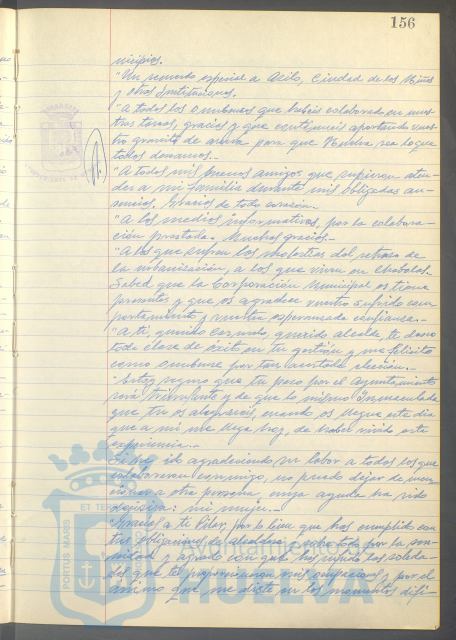 156
nicipios.
"Un recuerdo especial a Asilo, Ciudad de los Niños
y otras Instituciones.
"A todos los onubenses que habéis colaborado en nues-
tras tareas, gracias y que continuéis aportando vues-
tro granito de arena para que Huelva sea lo que
todos deseamos.-
"A todos mis buenos amigos que supieron aten-
der a mi familia durante mis obligadas au-
sencias, gracias de todo corazón.-
"A los medios informativos, por la colabora-
ción prestada. Muchas gracias.-
"A los que sufren las molestias del retraso de
la urbanización, a los que viven en chabolas.
Sabed que la Corporación Municipal os tiene
presentes y que os agradece vuestro sufrido com-
portamiento y vuestra esperanzada confianza.-
"A ti, querido alcalde, te deseo
toda clase de éxito en tu gestión y me felicito
como onubense por tan acertada elección.-
"Estoy seguro que tu paso por el Ayuntamiento
será triunfante y de que lo mismo
que tu os alegraréis, cuando os llegue este día
que a mi me llega hoy, de haber vivido esta
experiencia.-
Si he ido agradeciendo su labor a todos los que
colaboraron conmigo, no puedo dejar de men-
cionar a otra persona, cuya ayuda ha sido
decisiva: mi mujer.-
"Gracias a ti por lo bien que has cumplido con
tus obligaciones de alcaldesa y sobre todo por la
y agrado con que has sufrido las soleda-
des que te proporcionaron mis ocupaciones y por el
ánimo que me diste en los momentos difí-
PORTUS MARIS
ET TER
Ayuntamiento de
HUELVA